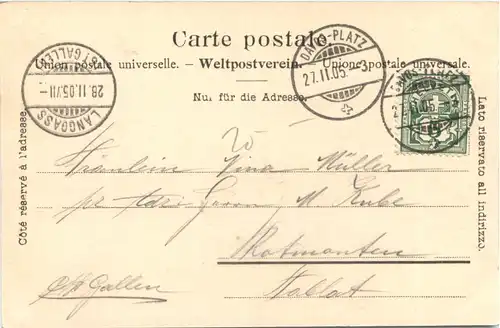 Carte postale.
Union postale universelle. – Weltpostverein. – Unione postale universale.
Nur für die Adresse.
Côté réservé à l'adresse.
Lato riservato all indirizzo.
DAVOS-PLATZ
27.II.05.
ST GALLEN
28.II.05.VII
LANGGASS
Fräulein Nina Müller
pr. Adr. Herrn M. Kube
Rotmonten
Tablat
St. Gallen